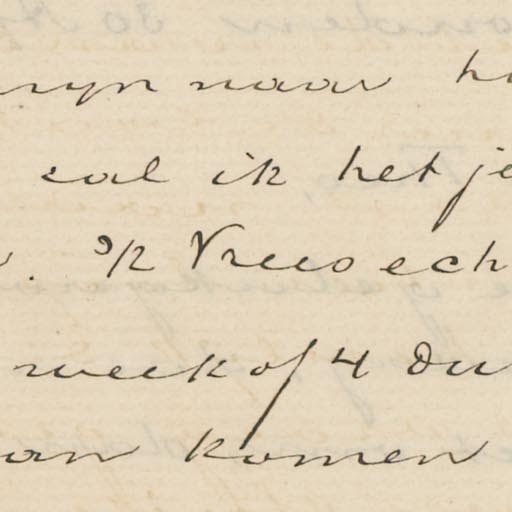 mijn naar h
zal ik het je
. Ik Vrees ech
week of 4 Du
an komen